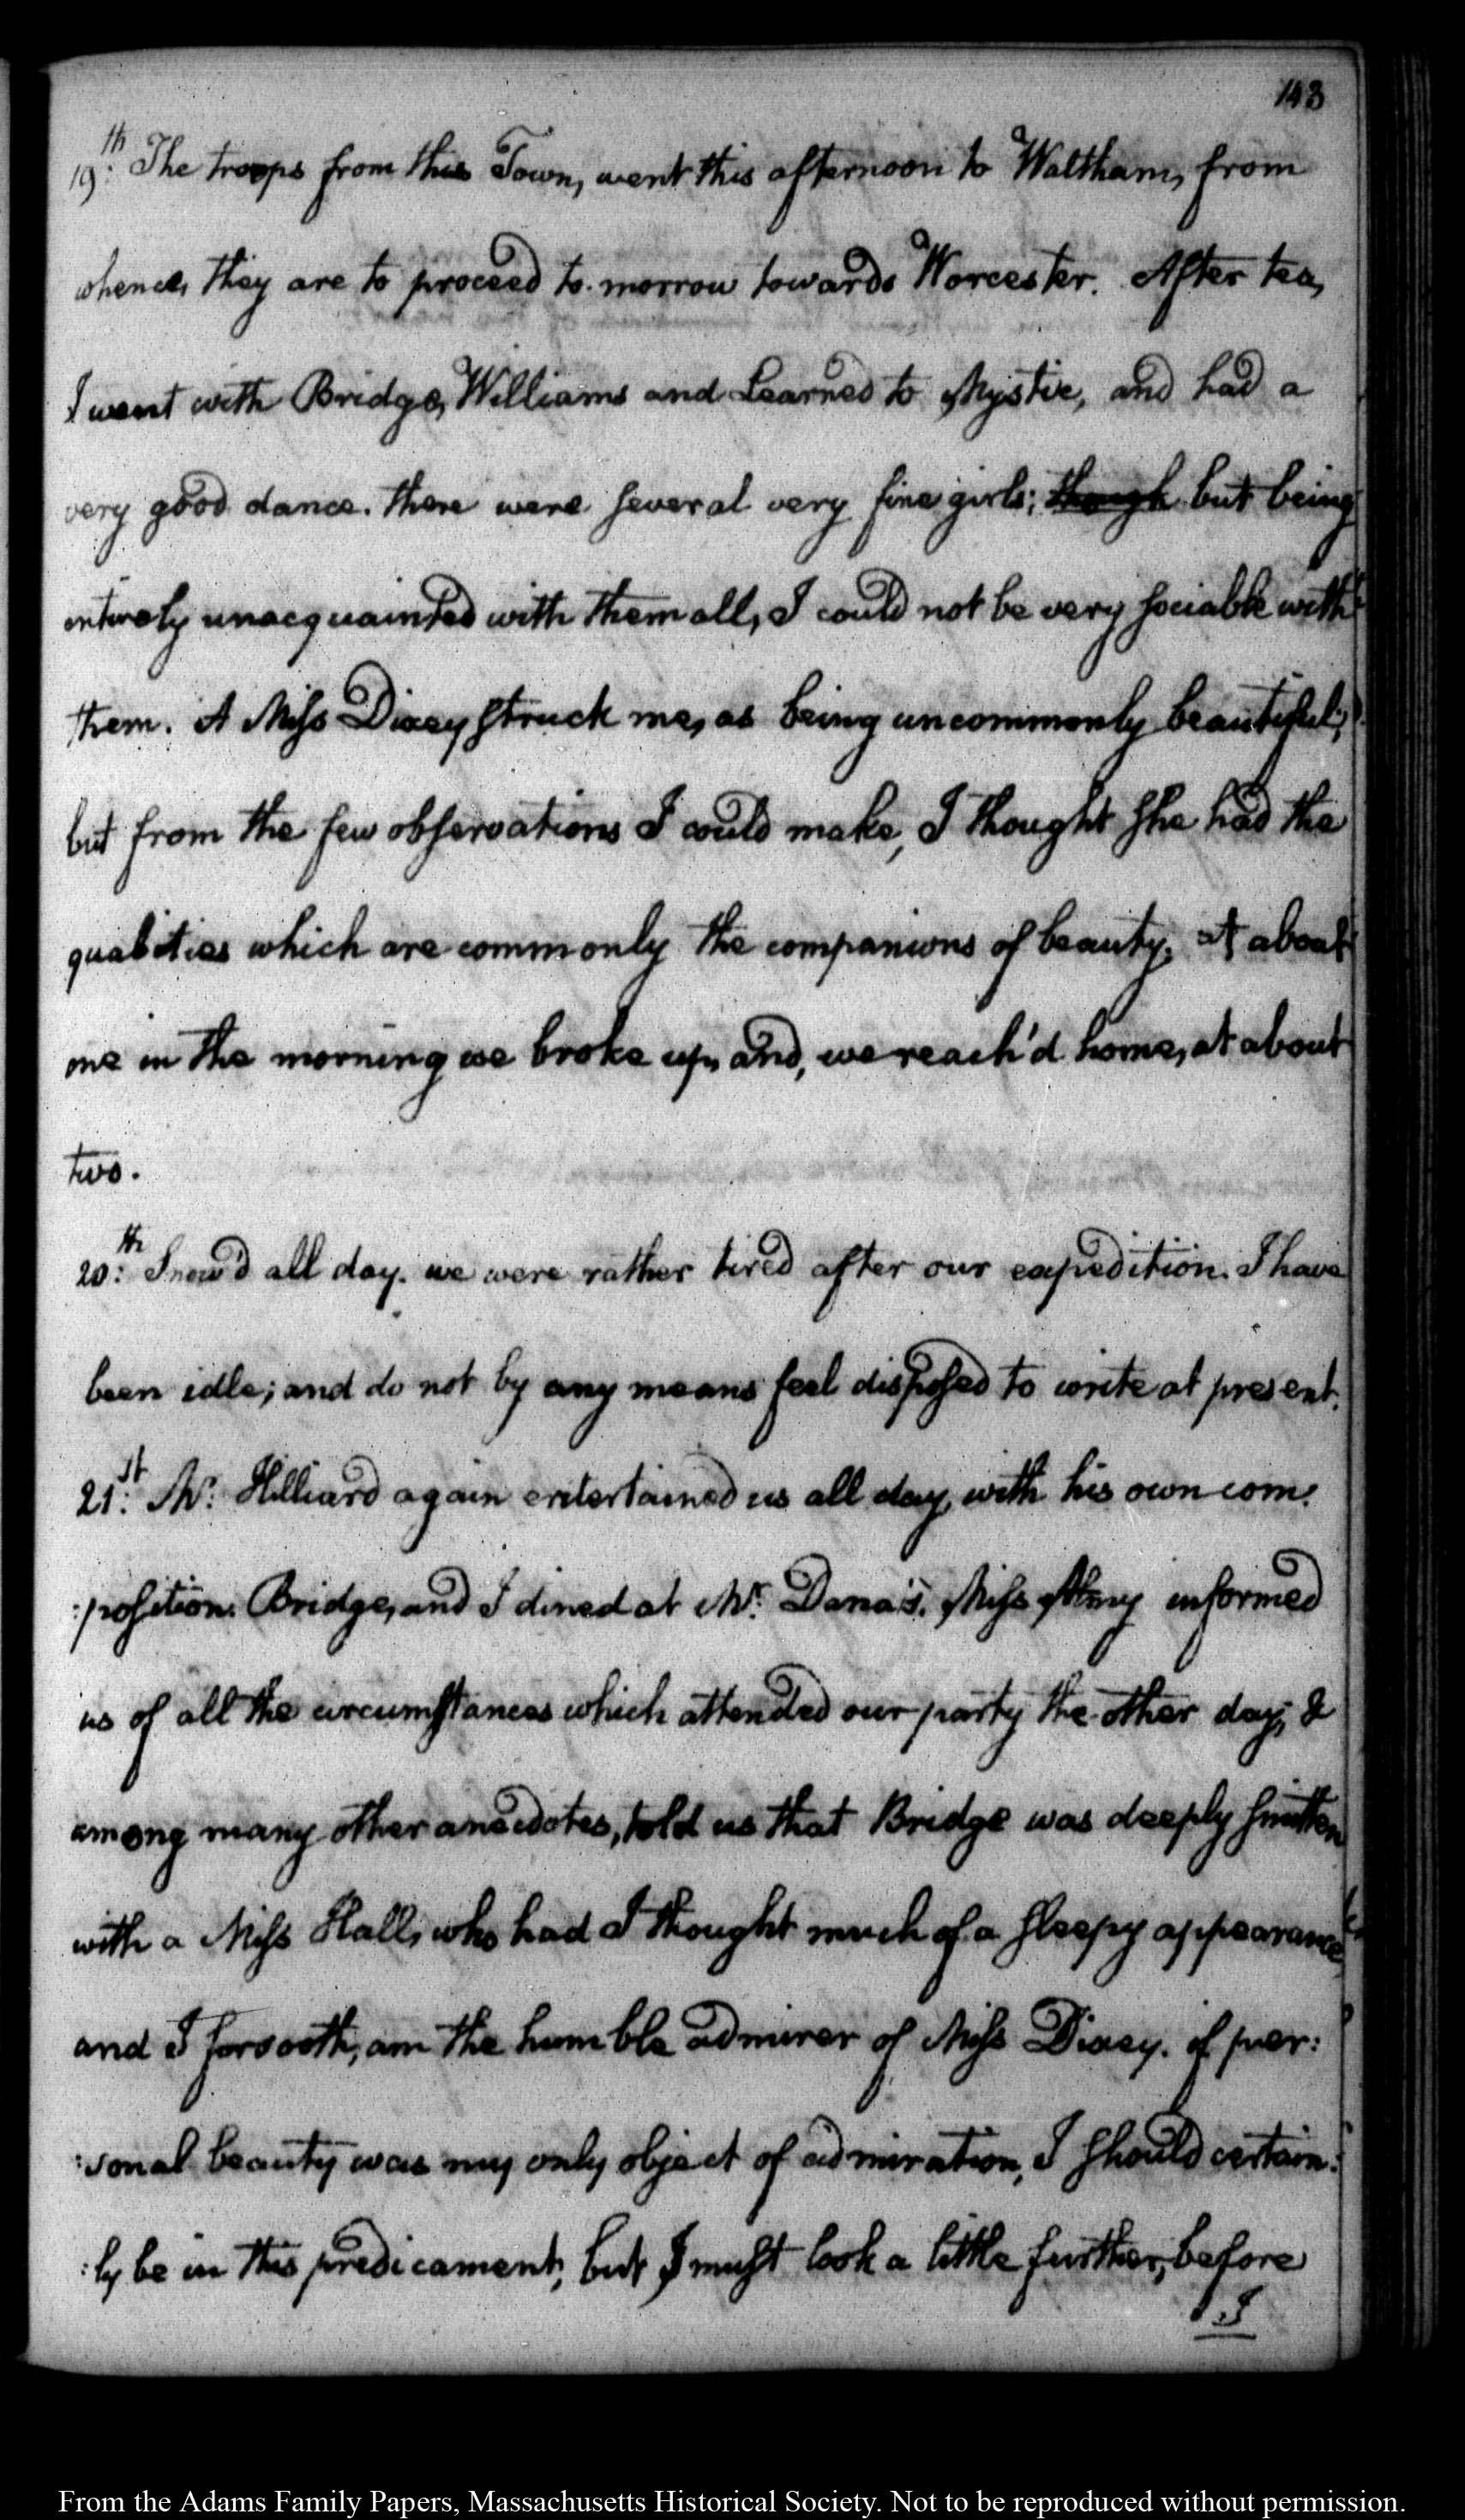 143
19:th The troops from this Town, went this afternoon to Waltham, from
whence, they are to proceed to-morrow towards Worcester. After tea,
I went with Bridge, Williams and Learned to Mystic, and had a
very good dance. there were several very fine girls; though but being
entirely unacquainted with them all, I could not be very sociable with
them. A Miss Dixey struck me, as being uncommonly beautiful;
but from the few observations I could make, I thought she had the
qualities which are commonly the companions of beauty. At about
one in the morning we broke up, and, we reach'd home, at about
two.
20:th Snow'd all day. we were rather tired after our expedition. I have
been idle; and do not by any means feel disposed to write at present.
21:st Mr. Hilliard again entertained us all day, with his own com:
:position. Bridge, and I dined at Mr. Dana's. Miss Almy informed
us of all the circumstances which attended our party the other day; &
among many other anecdotes, told us that Bridge was deeply smitten
with a Miss Hall, who had I thought much of a sleepy appearance
and I forsooth, am the humble admirer of Miss Dixey. if per:
:sonal beauty was my only object of admiration, I should certain:
:ly be in this predicament; but I must look a little further, before
I
From the Adams Family Papers, Massachusetts Historical Society. Not to be reproduced without permission.